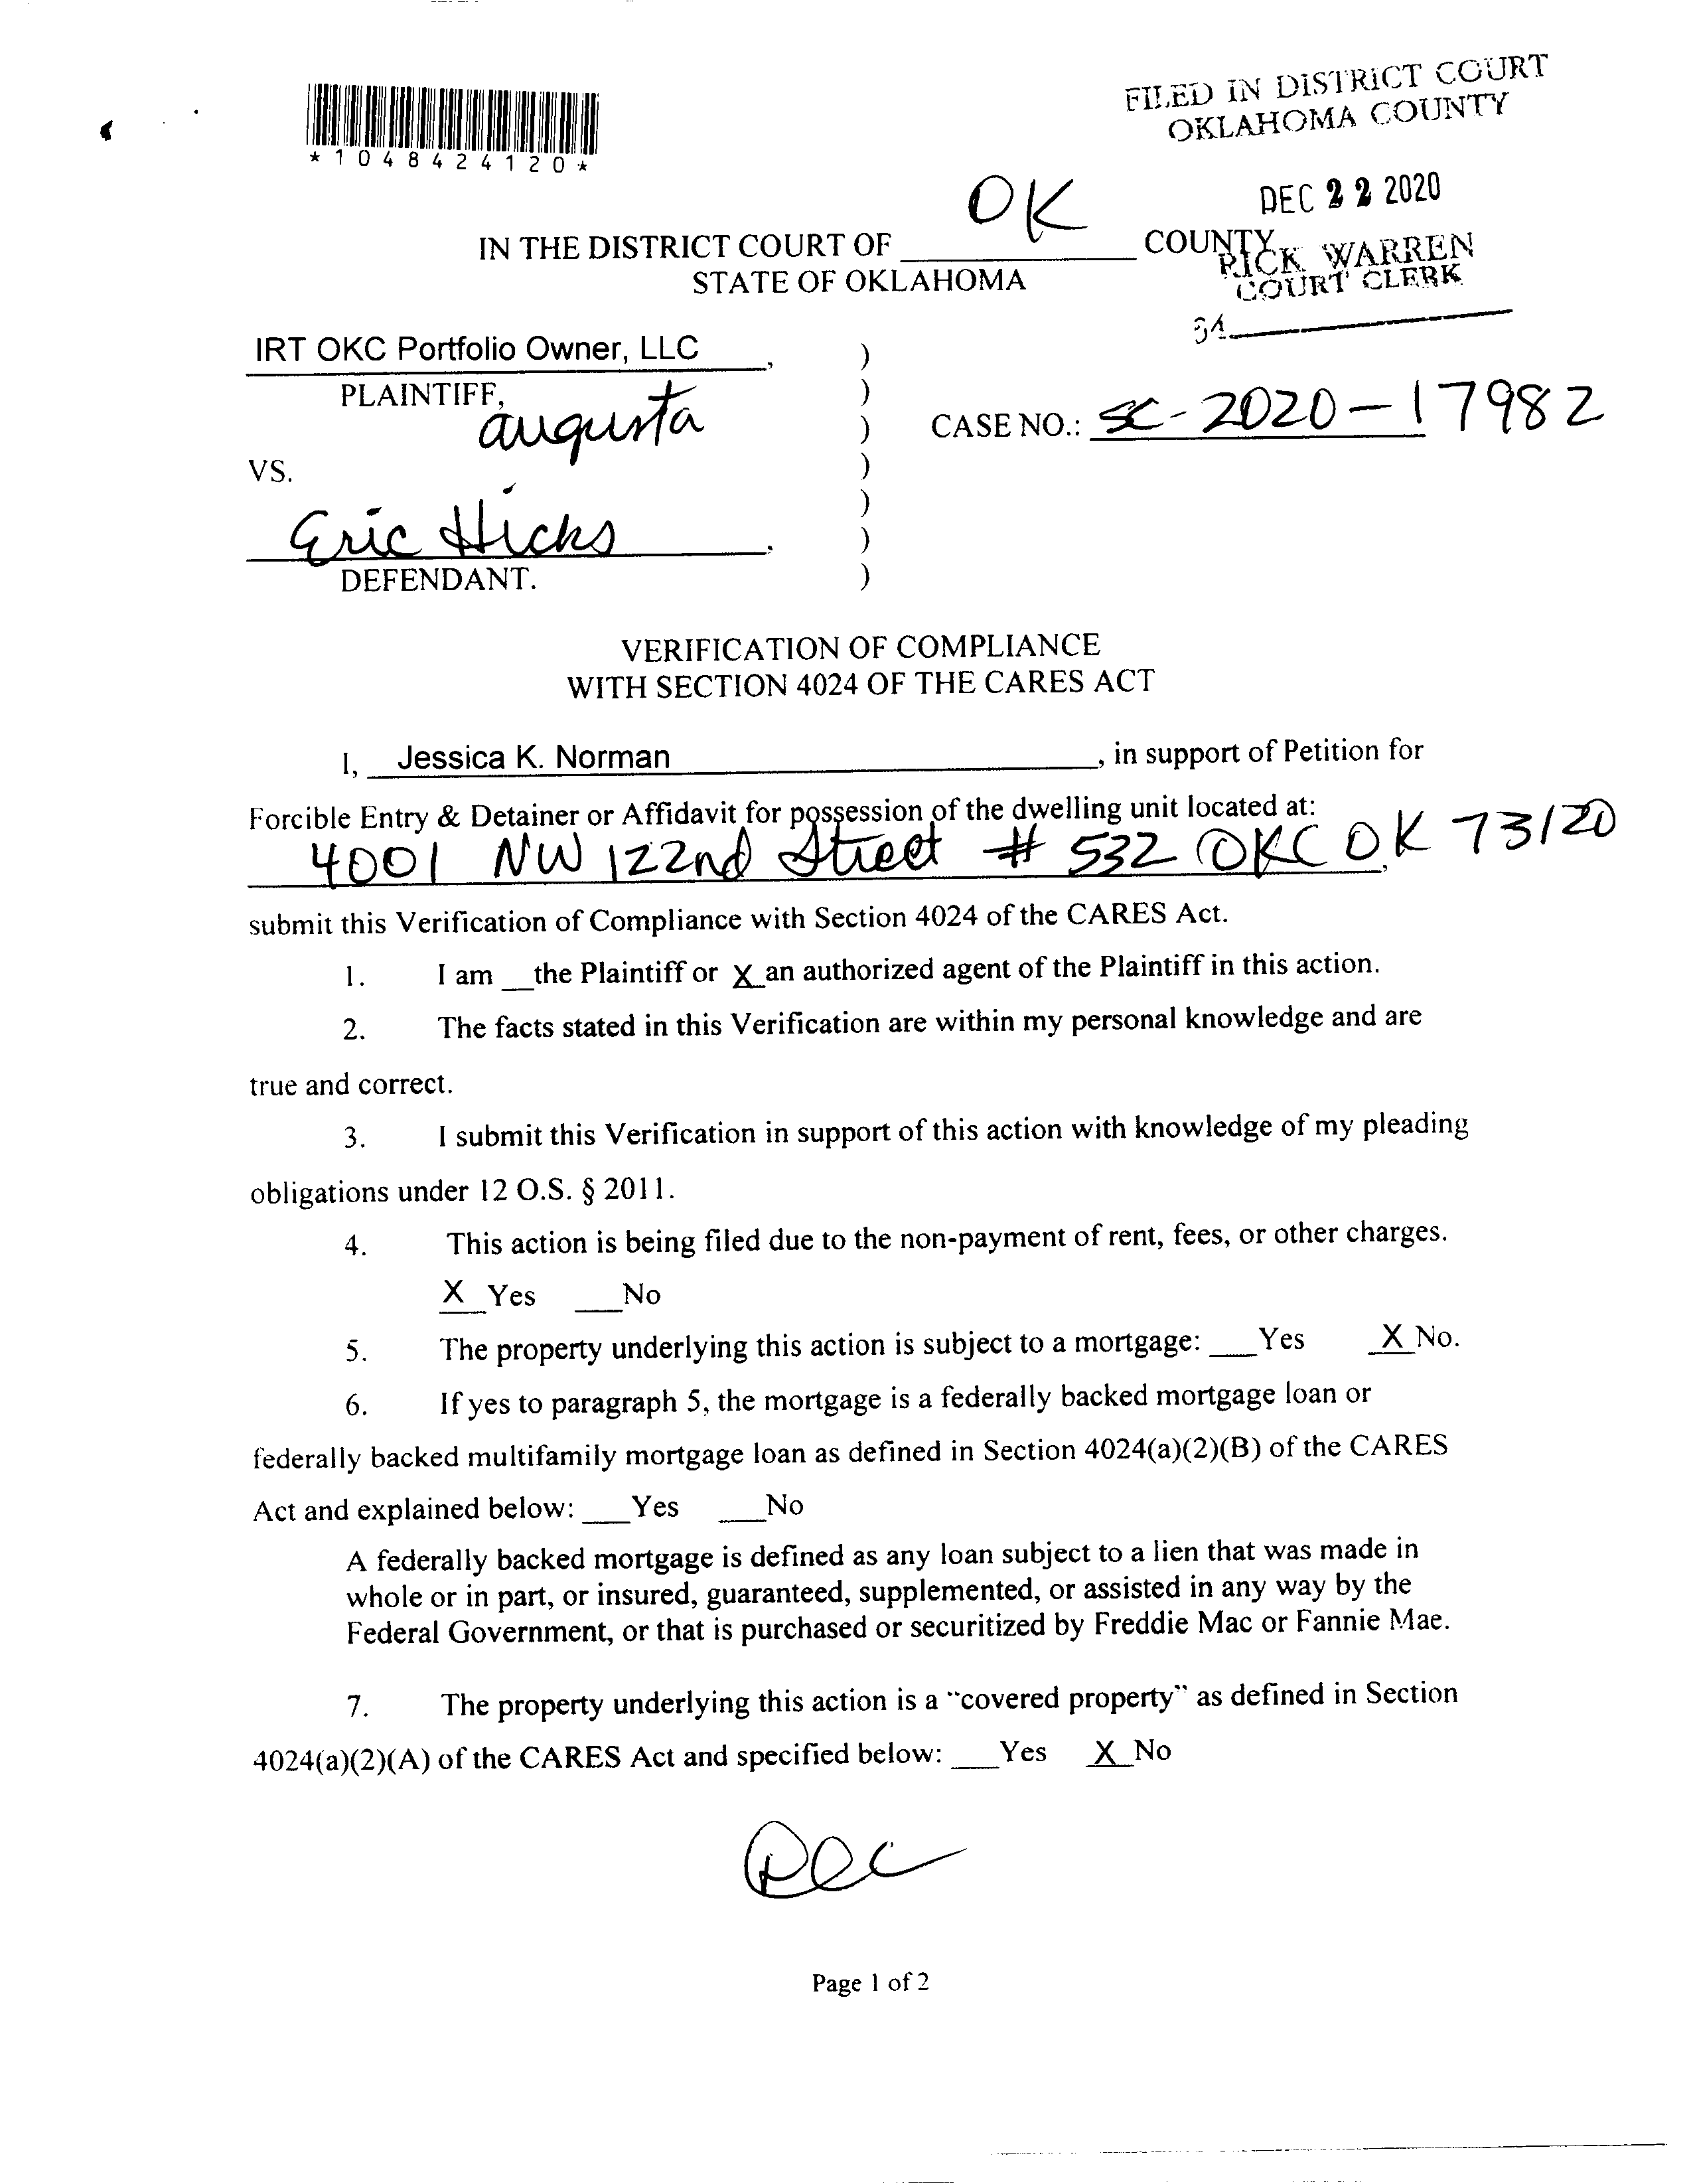 FILED IN DISTRICT COURT
OKLAHOMA COUNTY
*1048424120*
DEC 22 2020
IN THE DISTRICT COURT OF OK COUNTY
STATE OF OKLAHOMA
RICK WARREN
COURT CLERK
IRT OKC Portfolio Owner, LLC, )
PLAINTIFF, )
augusta )
CASE NO.: SC-2020-17982
VS. )
)
Eric Hicks. )
DEFENDANT. )
VERIFICATION OF COMPLIANCE
WITH SECTION 4024 OF THE CARES ACT
I, Jessica K. Norman, in support of Petition for
Forcible Entry & Detainer or Affidavit for possession of the dwelling unit located at:
4001 NW 122nd Street # 532 OKC OK 73120,
submit this Verification of Compliance with Section 4024 of the CARES Act.
1. I am __the Plaintiff or X_an authorized agent of the Plaintiff in this action.
2. The facts stated in this Verification are within my personal knowledge and are
true and correct.
3. I submit this Verification in support of this action with knowledge of my pleading
obligations under 12 O.S. § 2011.
4. This action is being filed due to the non-payment of rent, fees, or other charges.
X Yes ___No
5. The property underlying this action is subject to a mortgage: ___Yes X No.
6. If yes to paragraph 5, the mortgage is a federally backed mortgage loan or
federally backed multifamily mortgage loan as defined in Section 4024(a)(2)(B) of the CARES
Act and explained below: ___Yes ___No
A federally backed mortgage is defined as any loan subject to a lien that was made in
whole or in part, or insured, guaranteed, supplemented, or assisted in any way by the
Federal Government, or that is purchased or securitized by Freddie Mac or Fannie Mae.
7. The property underlying this action is a "covered property" as defined in Section
4024(a)(2)(A) of the CARES Act and specified below: ___Yes X No
Page 1 of 2